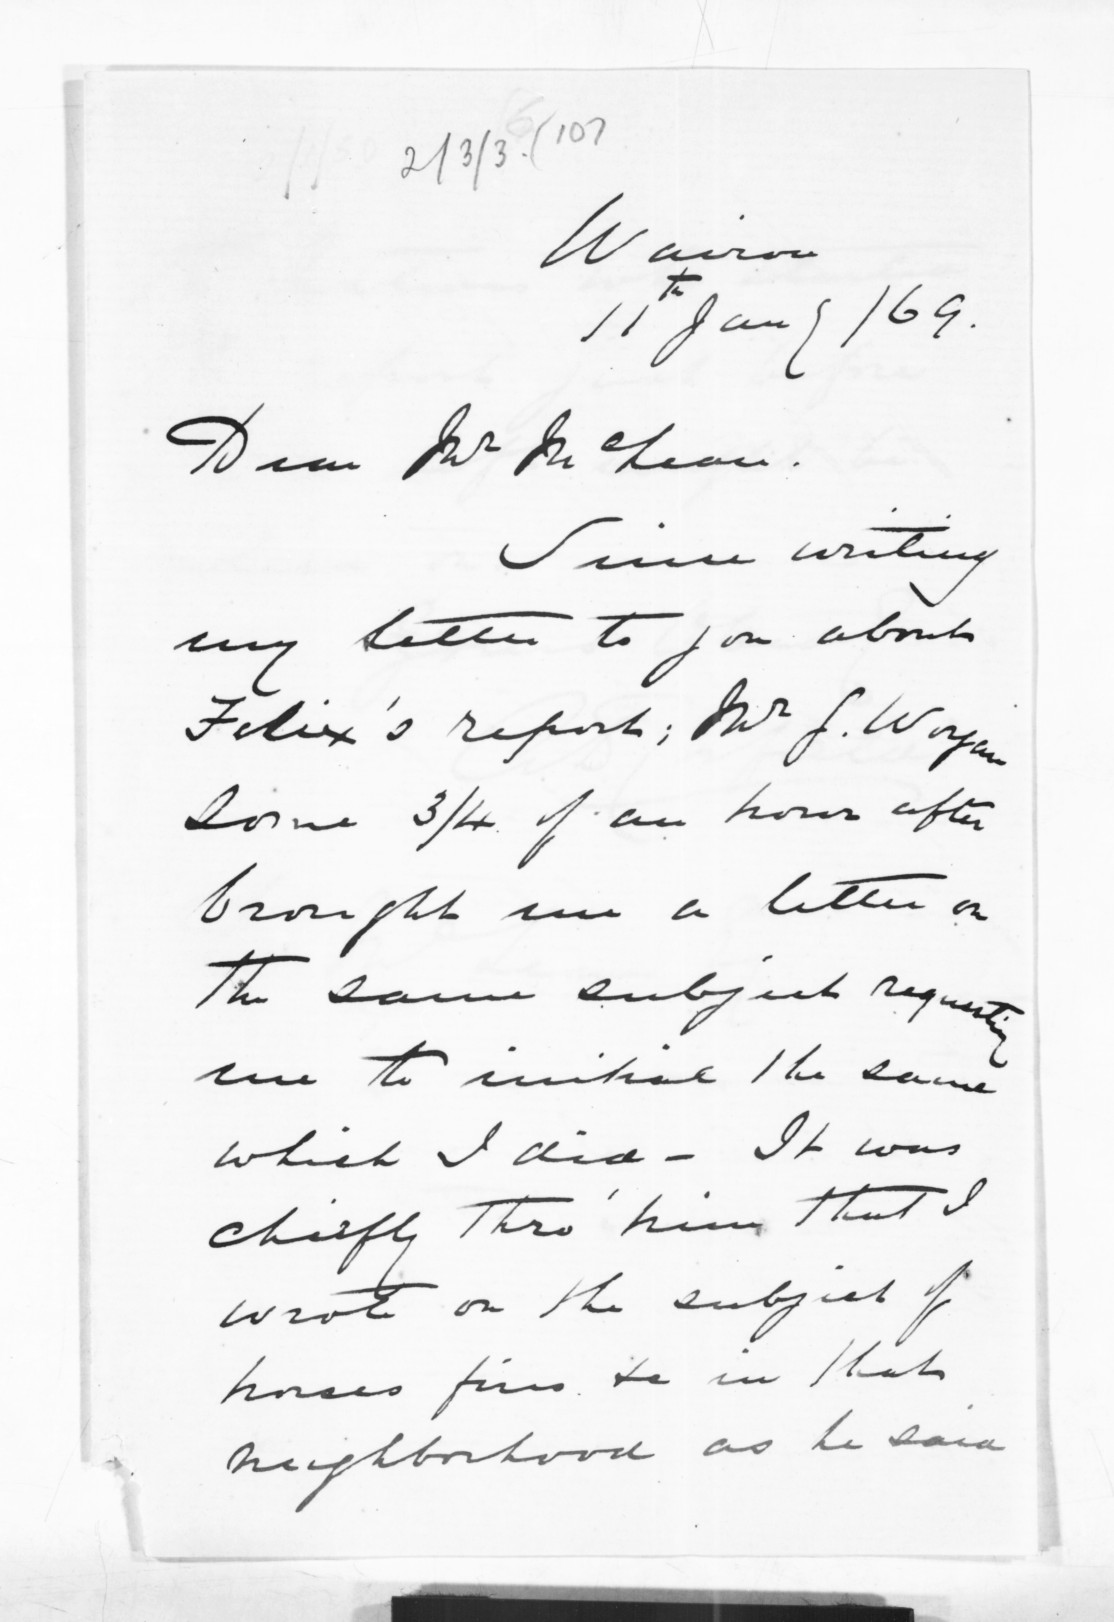 2/3/3 (107
Wairoa
11th Jany /69.
Dear Mr McLean.
Since writing
my letter to you about
Felix's report; Mr J. Worgan
some 3/4 of an hour after
brought me a letter on
the same subject requesting
me to initial the same
which I did - It was
chiefly thro' him that I
wrote on the subject of
horses fires &c in that
neighborhood as he said